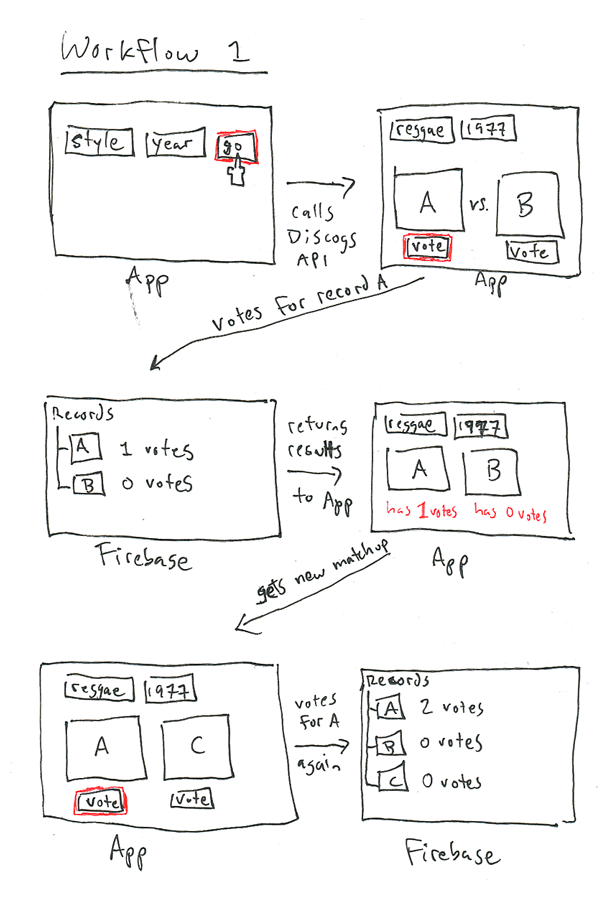 Workflow 1
style year go
App
calls
Discogs
API
reggae 1977
A vs. B
vote vote
App
votes for record A
Records
A 1 votes
B 0 votes
Firebase
returns
results
to App
reggae 1977
A B
has 1 votes has 0 votes
App
gets new matchup
reggae 1977
A C
vote vote
App
votes
for A
again
Records
A 2 votes
B 0 votes
C 0 votes
Firebase